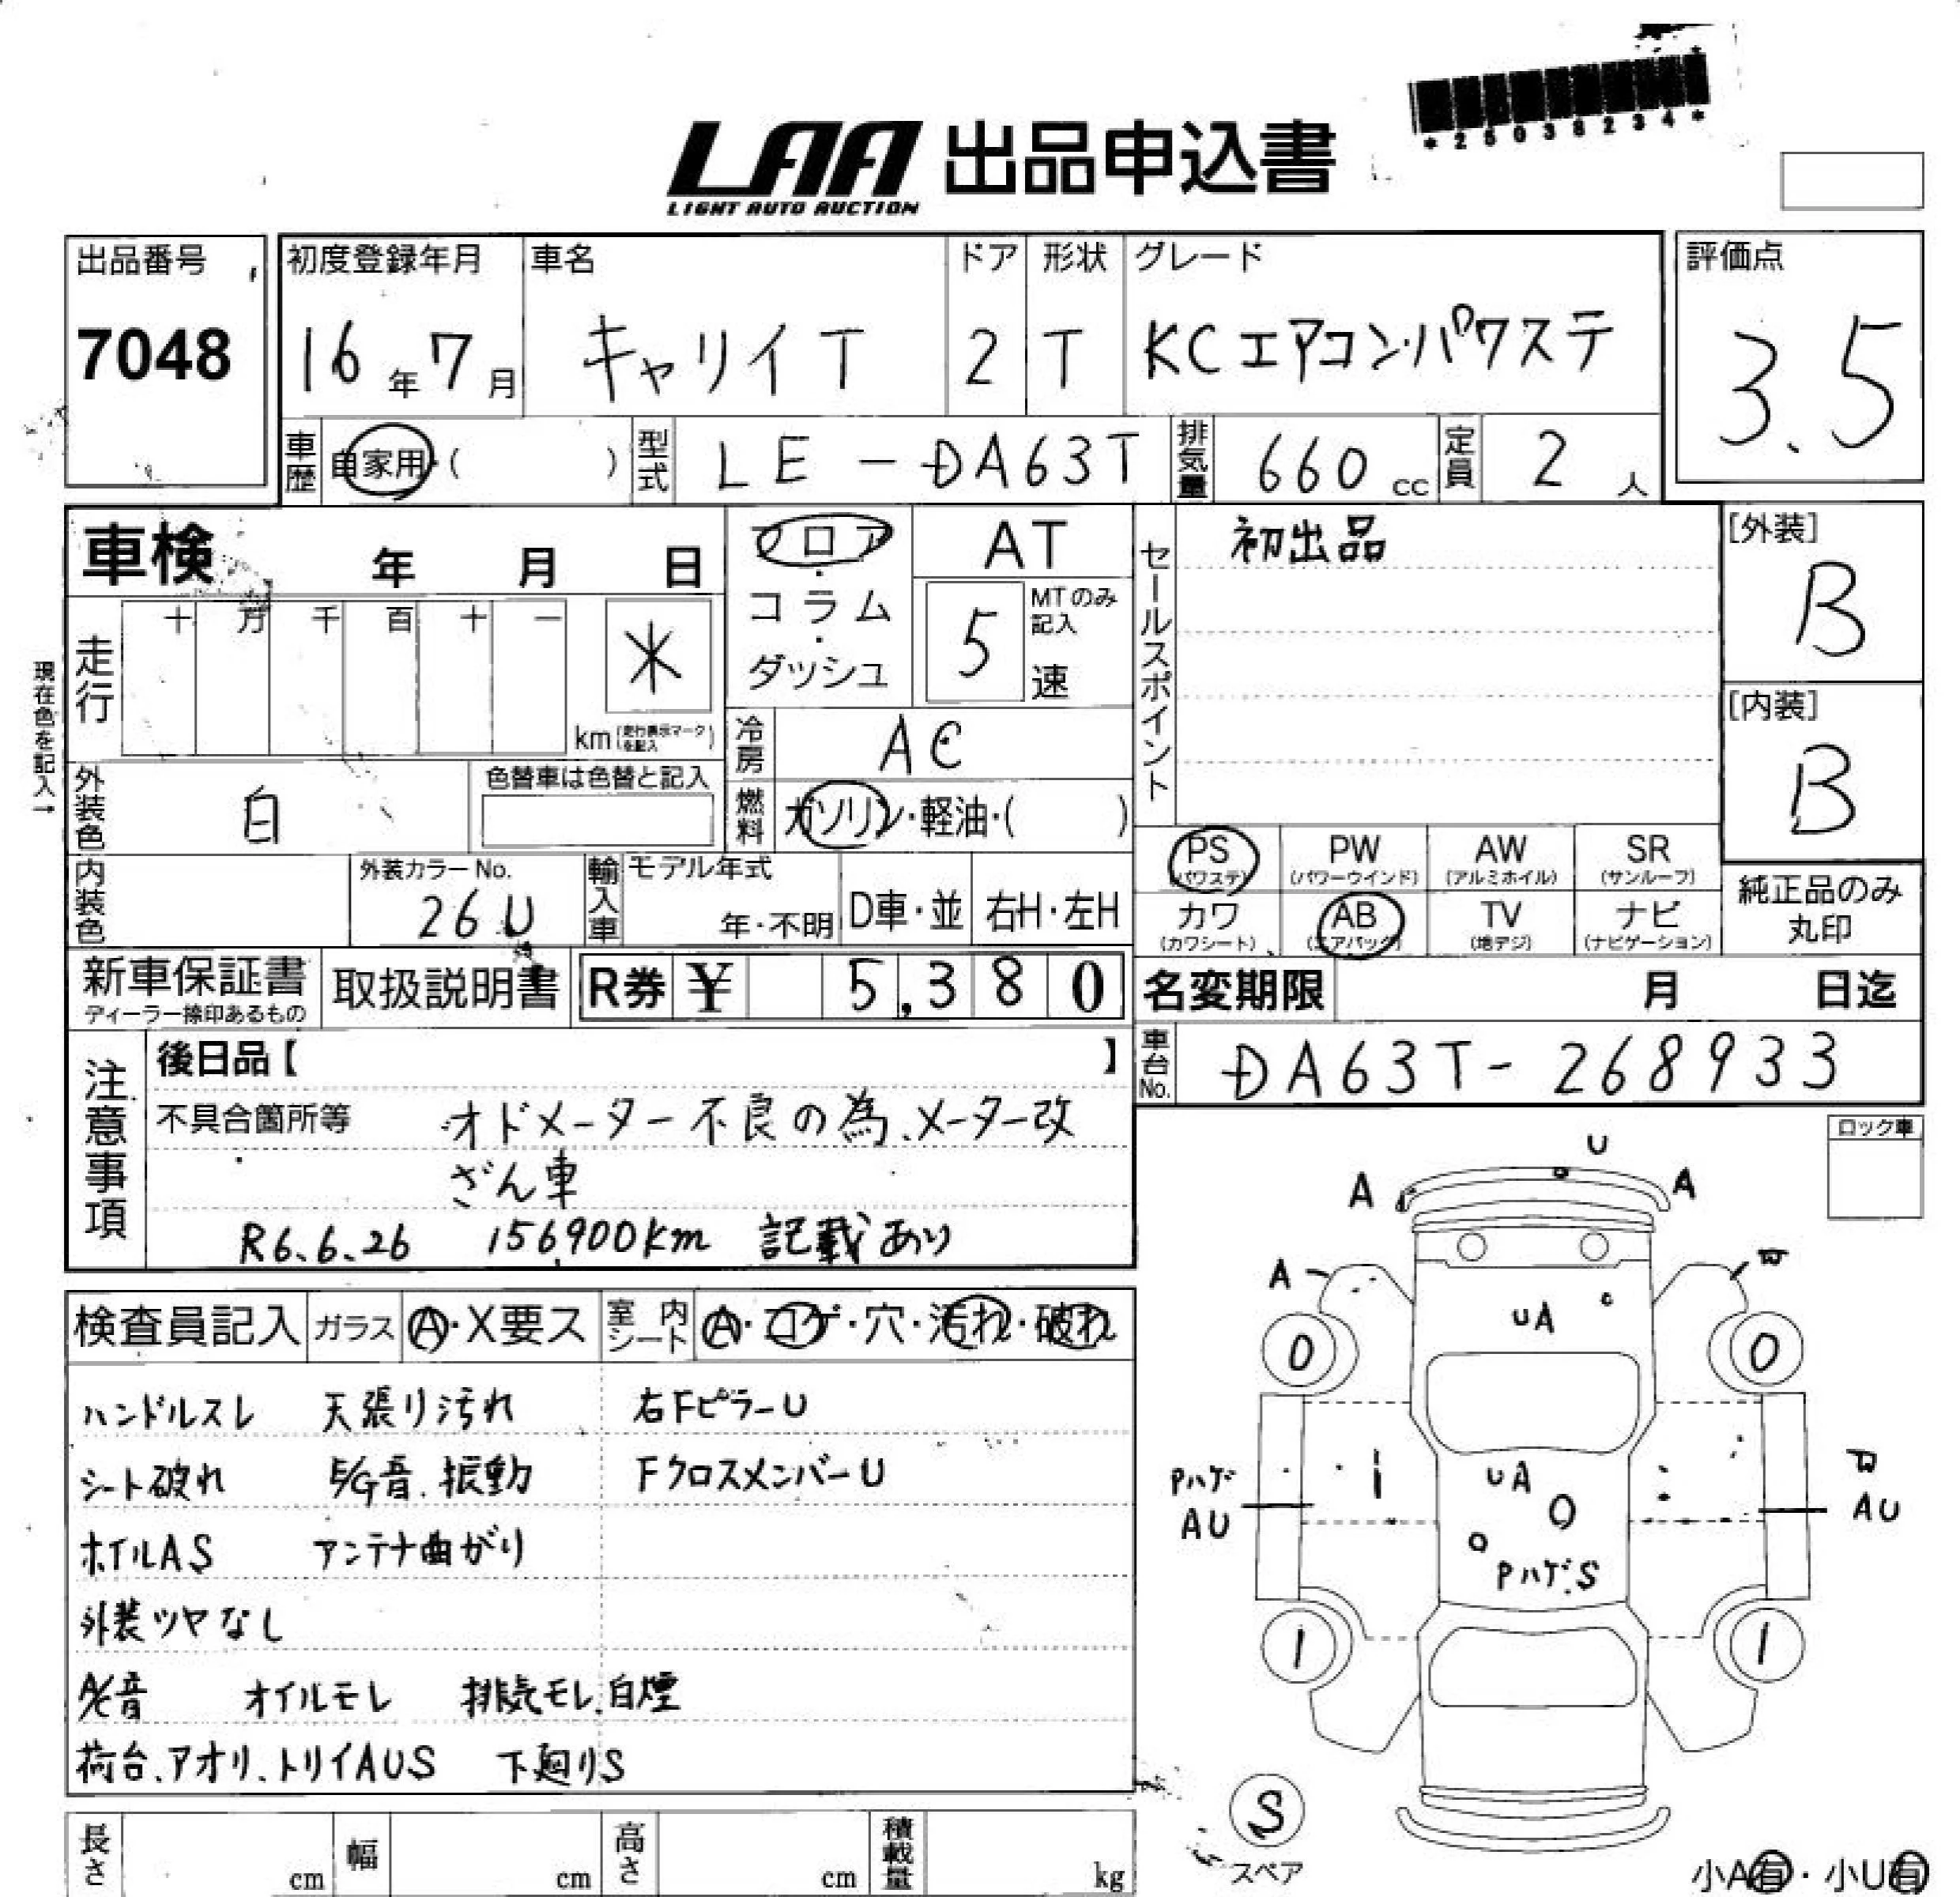 *25038234*
LAA 出品申込書
LIGHT AUTO AUCTION
出品番号
7048
初度登録年月
16年7月
車名
キャリイT
ドア
2
形状
T
グレード
KCエアコン・パワステ
評価点
3.5
車歴
自家用・( )
型式
LE-DA63T
排気量
660cc
定員
2人
車検 年 月 日
フロア・コラム・ダッシュ
AT
5
MTのみ記入
速
セールスポイント
初出品
[外装]
B
[内装]
B
現在色を記入→
走行
十 万 千 百 十 一
*
km(走行表示マークを記入)
冷房
AC
燃料
ガソリン・軽油・( )
外装色
白
色替車は色替と記入
内装色
外装カラーNo.
26U
輸入車
モデル年式
年・不明
D車・並
右H・左H
PS
(パワステ)
PW
(パワーウインド)
AW
(アルミホイル)
SR
(サンルーフ)
カワ
(カワシート)
AB
(エアバック)
TV
(地デジ)
ナビ
(ナビゲーション)
純正品のみ
丸印
新車保証書
ディーラー捺印あるもの
取扱説明書
R券 ¥ 5,380
名変期限 月 日迄
車台No.
DA63T-268933
注意事項
後日品【 】
不具合箇所等 オドメーター不良の為、メーター改
ざん車
R6.6.26 156,900km 記載あり
ロック車
検査員記入
ガラス
A・X要ス
室内シート
A・コゲ・穴・汚れ・破れ
ハンドルスレ 天張り汚れ 右FピラーU
シート破れ E/G音.振動 FクロスメンバーU
ホイルAS アンテナ曲がり
外装ツヤなし
A/C音 オイルモレ 排気モレ.白煙
荷台.アオリ.トリイAUS 下廻りS
U
A A
A
UA
0 0
Pハゲ
AU
UA
AU
PハゲS
1 1
S
スペア
小A有・小U有
長さ cm
幅 cm
高さ cm
積載量 kg